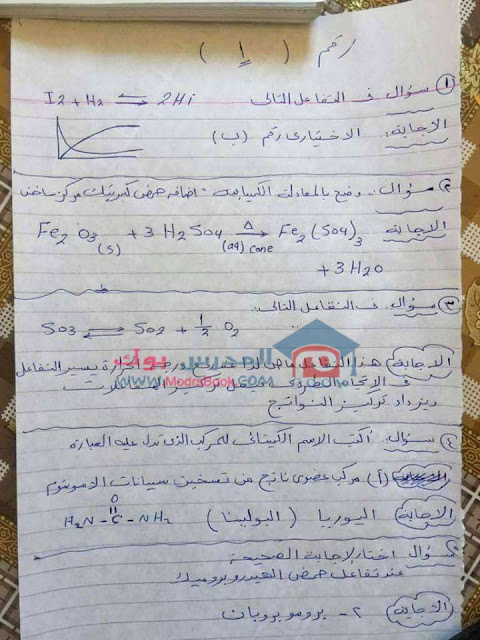 رقم ( ١ )
① سؤال فى التفاعل التالى I2 + H2 ⇌ 2Hi
الاجابة: الاختيارى رقم (ب)
② سؤال: وضح بالمعادلة الكيميائية - اضافة حمض كبريتيك مركز ساخن
الاجابة Fe2 O3 (s) + 3 H2 So4 (aq) conc →Δ Fe2 (So4)3
+ 3 H2O
③ سؤال فى التفاعل التالى
So3 ⇌ So2 + 1/2 O2
المدرس بوك
www.ModrsBook.com
الاجابة هذا التفاعل ماص للحرارة يسير التفاعل
فى الاتجاه الطردى تركيز
ويزداد تركيز النواتج
④ سؤال: أكتب الاسم الكيميائى للمركب الذى تدل عليه العبارة
(أ) مركب عضوى ناتج من تسخين سيانات الامونيوم
الاجابة اليوريا (البولينا) H2N - C - NH2
O
سؤال اختار الاجابة الصحيحة
عند تفاعل حمض الهيدروبروميك
الاجابة ٢- برومو بروبان